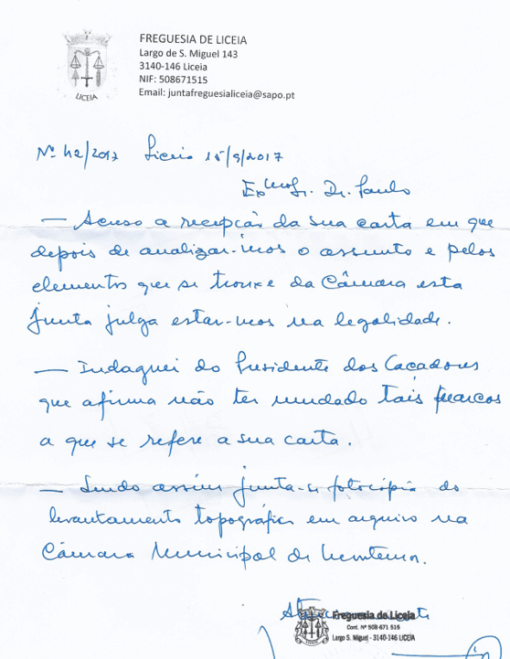 FREGUESIA DE LICEIA
Largo de S. Miguel 143
3140-146 Liceia
NIF: 508671515
Email: juntafreguesialiceia@sapo.pt
LICEIA
Nº 42/2017 Liceia 15/9/2017
Exmo Sr. Dr. Paulo
— Acuso a recepção da sua carta em que
depois de analizar-mos o assunto e pelos
elementos que se trouxe da Câmara esta
Junta julga estar-mos na legalidade.
— Indaguei do Presidente dos Caçadores
que afirma não ter mudado tais marcos
a que se refere a sua carta.
— Sendo assim junta-se fotocópia do
levantamento topográfico em arquivo na
Câmara Municipal de
Freguesia de Liceia
Cont. Nº 508 671 515
Largo S. Miguel - 3140-146 LICEIA